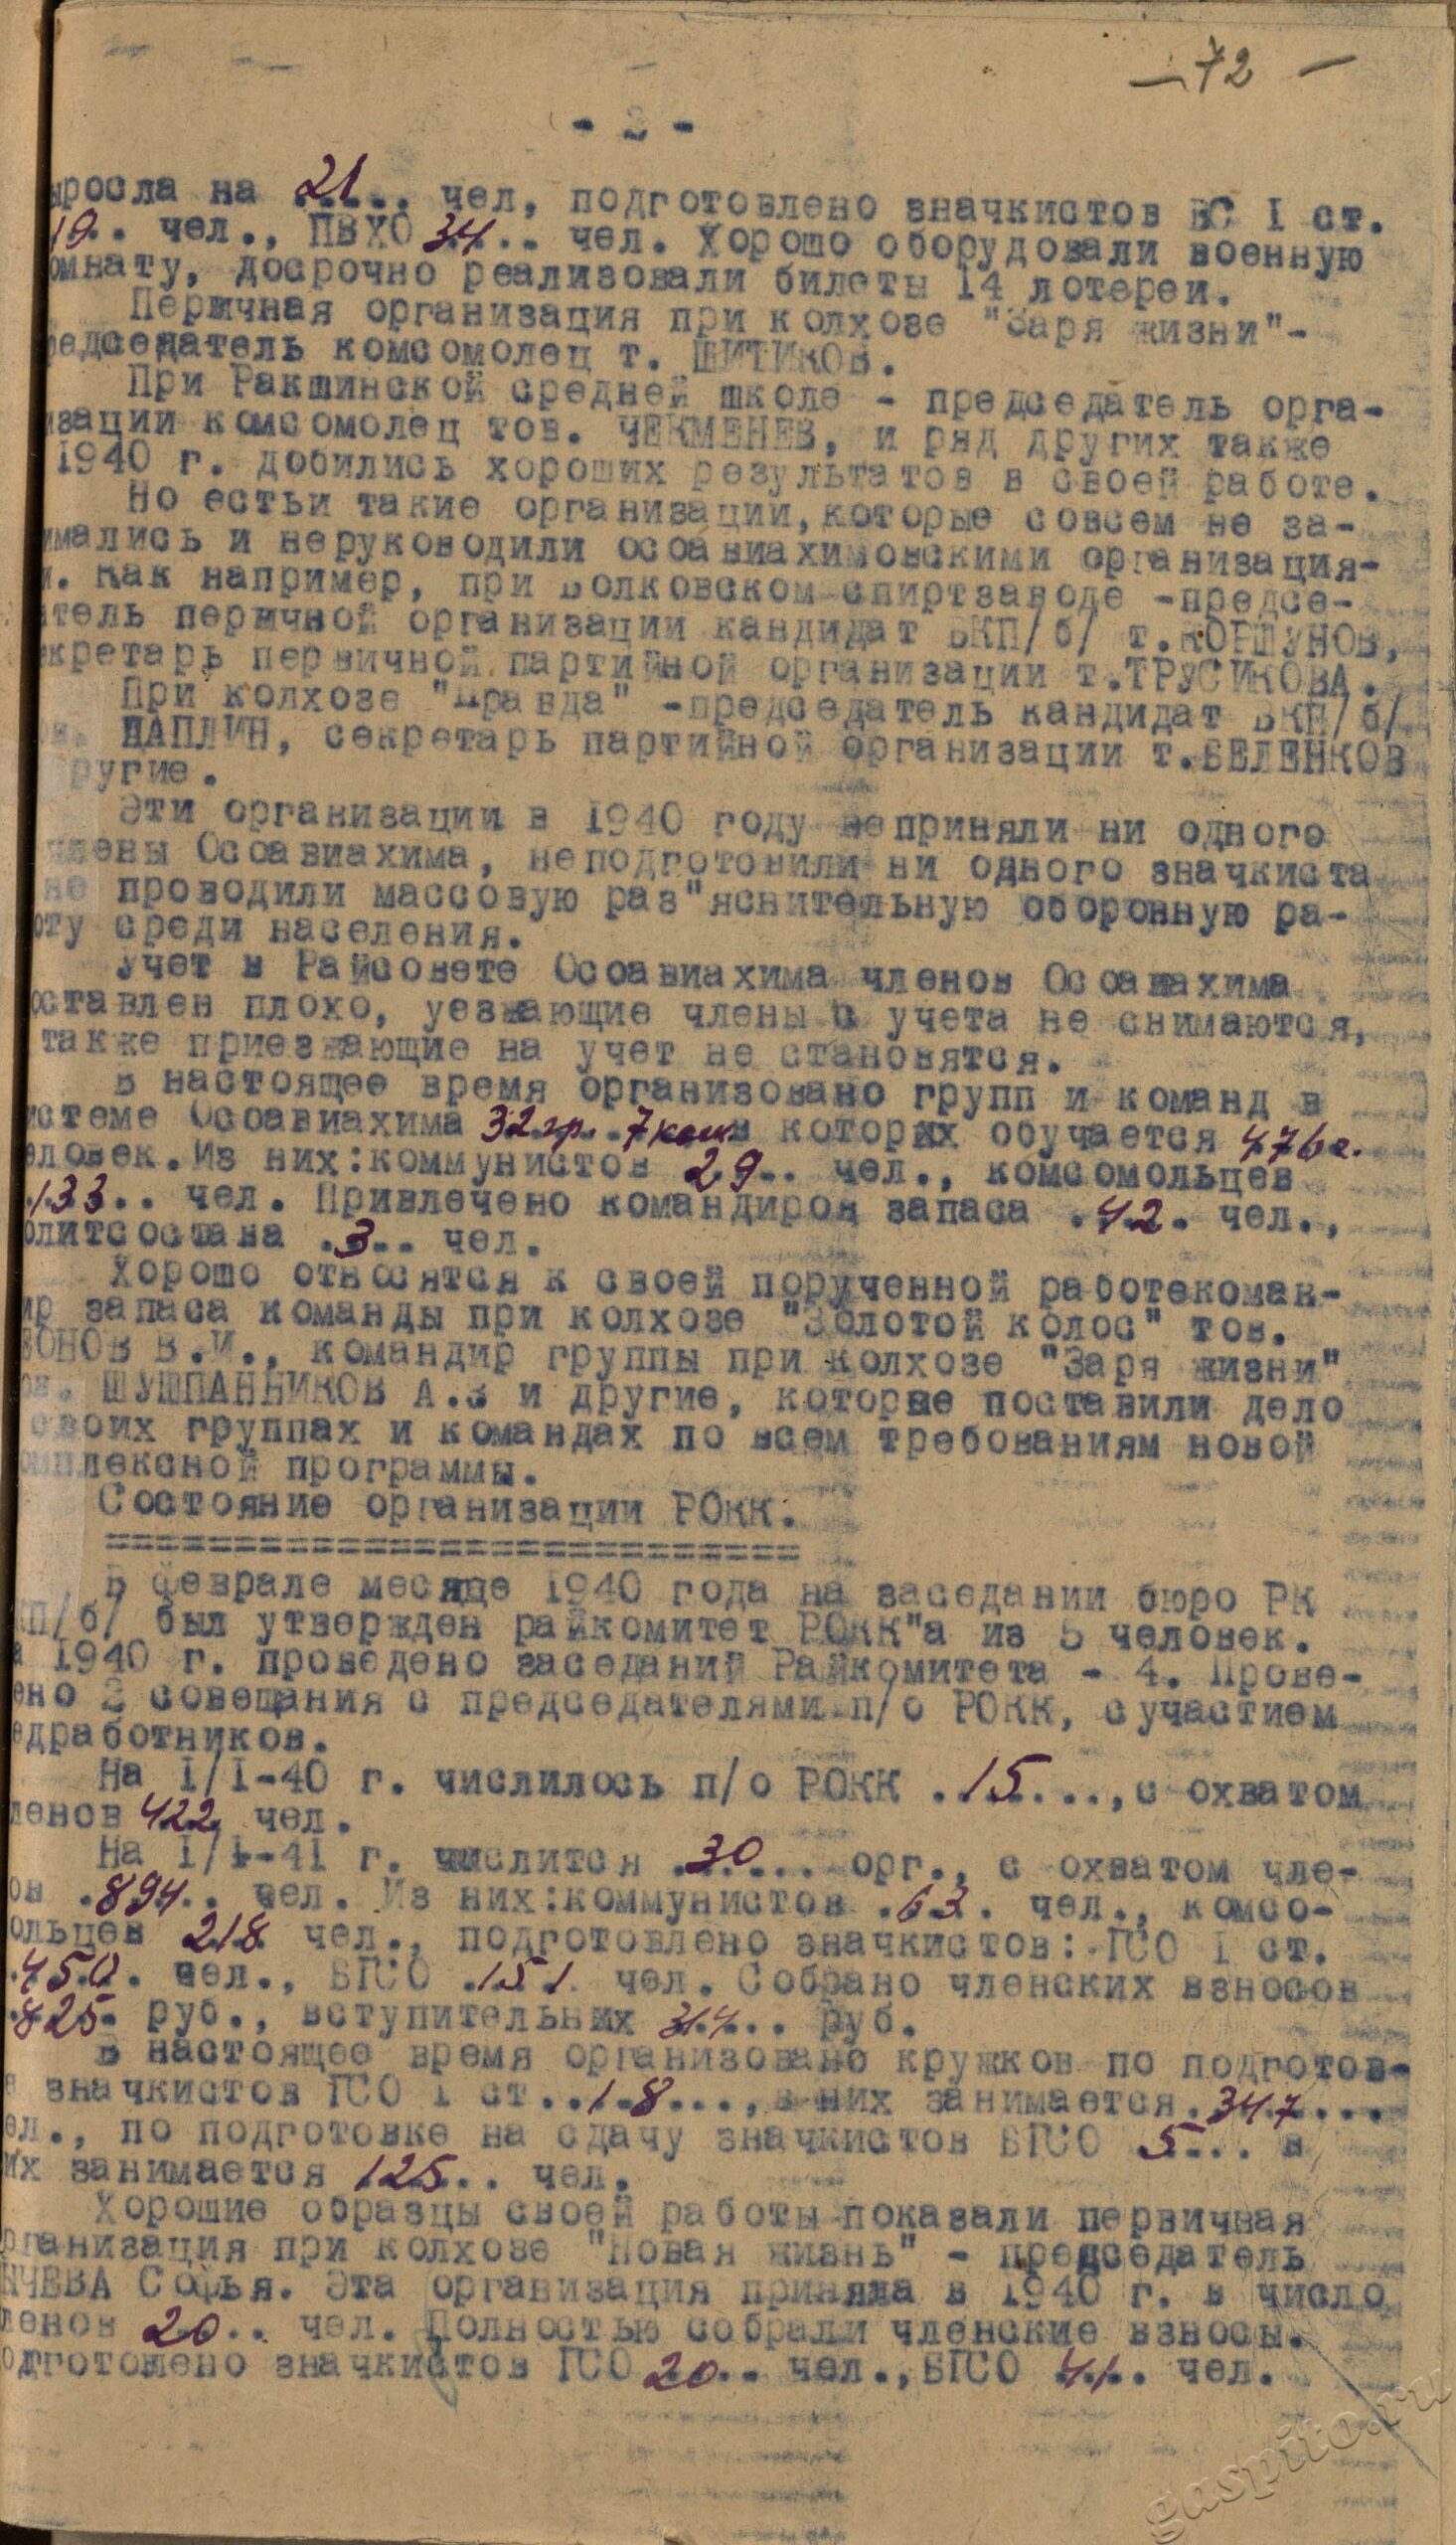 — 72 —
- 2 -
ыросла на 21... чел, подготовлено значкистов ВС I ст.
19.. чел., ПВХО 34... чел. Хорошо оборудовали военную
омнату, досрочно реализовали билеты 14 лотереи.
Первичная организация при колхозе "Заря жизни"-
редседатель комсомолец т. ШИТИКОВ.
При Ракшинской средней школе - председатель орга-
изации комсомолец тов. ЧЕКМЕНЕВ, и ряд других также
1940 г. добились хороших результатов в своей работе.
Но естьи такие организации, которые совсем не за-
имались и неруководили осоавиахимовскими организация-
и. Как например, при Волковском спиртзаводе -предсе-
атель первичной организации кандидат ВКП/б/ т.КОРШУНОВ,
екретарь первичной партийной организации т.ТРУСИКОВА.
При колхозе "Правда" -председатель кандидат ВКП/б/
ов. ЦАПЛИН, секретарь партийной организации т.БЕЛЕНКОВ
ругие.
Эти организации в 1940 году неприняли ни одного
члены Осоавиахима, неподготовили ни одного значкиста
не проводили массовую раз"яснительную оборонную ра-
оту среди населения.
Учет в Райсовете Осоавиахима членов Осоавиахима
оставлен плохо, уезжающие члены с учета не снимаются,
также приезжающие на учет не становятся.
В настоящее время организовано групп и команд в
истеме Осоавиахима 32 гр. 7 ком в которых обучается 476 ч.
еловек. Из них:коммунистов 29.. чел., комсомольцев
.133.. чел. Привлечено командиров запаса .42. чел.,
олитсостава .3.. чел.
Хорошо относятся к своей порученной работекоман-
ир запаса команды при колхозе "Золотой колос" тов.
ОНОВ В.И., командир группы при колхозе "Заря жизни"
ов. ШУШПАННИКОВ А.В и другие, которые поставили дело
своих группах и командах по всем требованиям новой
омплексной программы.
Состояние организации РОКК.
===========================
В феврале месяце 1940 года на заседании бюро РК
КП/б/ был утвержден райкомитет РОКК"а из 5 человек.
а 1940 г. проведено заседаний Райкомитета - 4. Прове-
ено 2 совещания с председателями п/о РОКК, с участием
едработников.
На I/I-40 г. числилось п/о РОКК .15...., с охватом
ленов 422 чел.
На I/I-41 г. числится .30.... орг., с охватом чле-
ов .894.. чел. Из них:коммунистов .63. чел., комсо-
ольцев 218 чел., подготовлено значкистов: ГСО I ст.
.450. чел., БГСО .151 чел. Собрано членских взносов
.825. руб., вступительных 314... руб.
В настоящее время организовано кружков по подготов-
е значкистов ГСО I ст..18...., в них занимается.347....
ел., по подготовке на сдачу значкистов БГСО 5... в
их занимается 125.. чел.
Хорошие образцы своей работы показали первичная
рганизация при колхозе "Новая жизнь" - председатель
НЧЕВА Софья. Эта организация приняла в 1940 г. в число
ленов 20.. чел. Полностью собрали членские взносы.
одготовлено значкистов ГСО 20.. чел., БГСО 41.. чел.
gaspito.ru